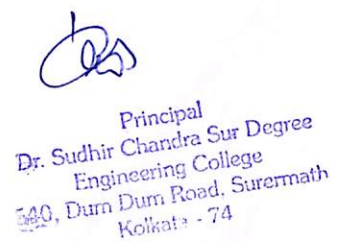 Principal
Dr. Sudhir Chandra Sur Degree
Engineering College
540, Dum Dum Road, Surermath
Kolkata - 74